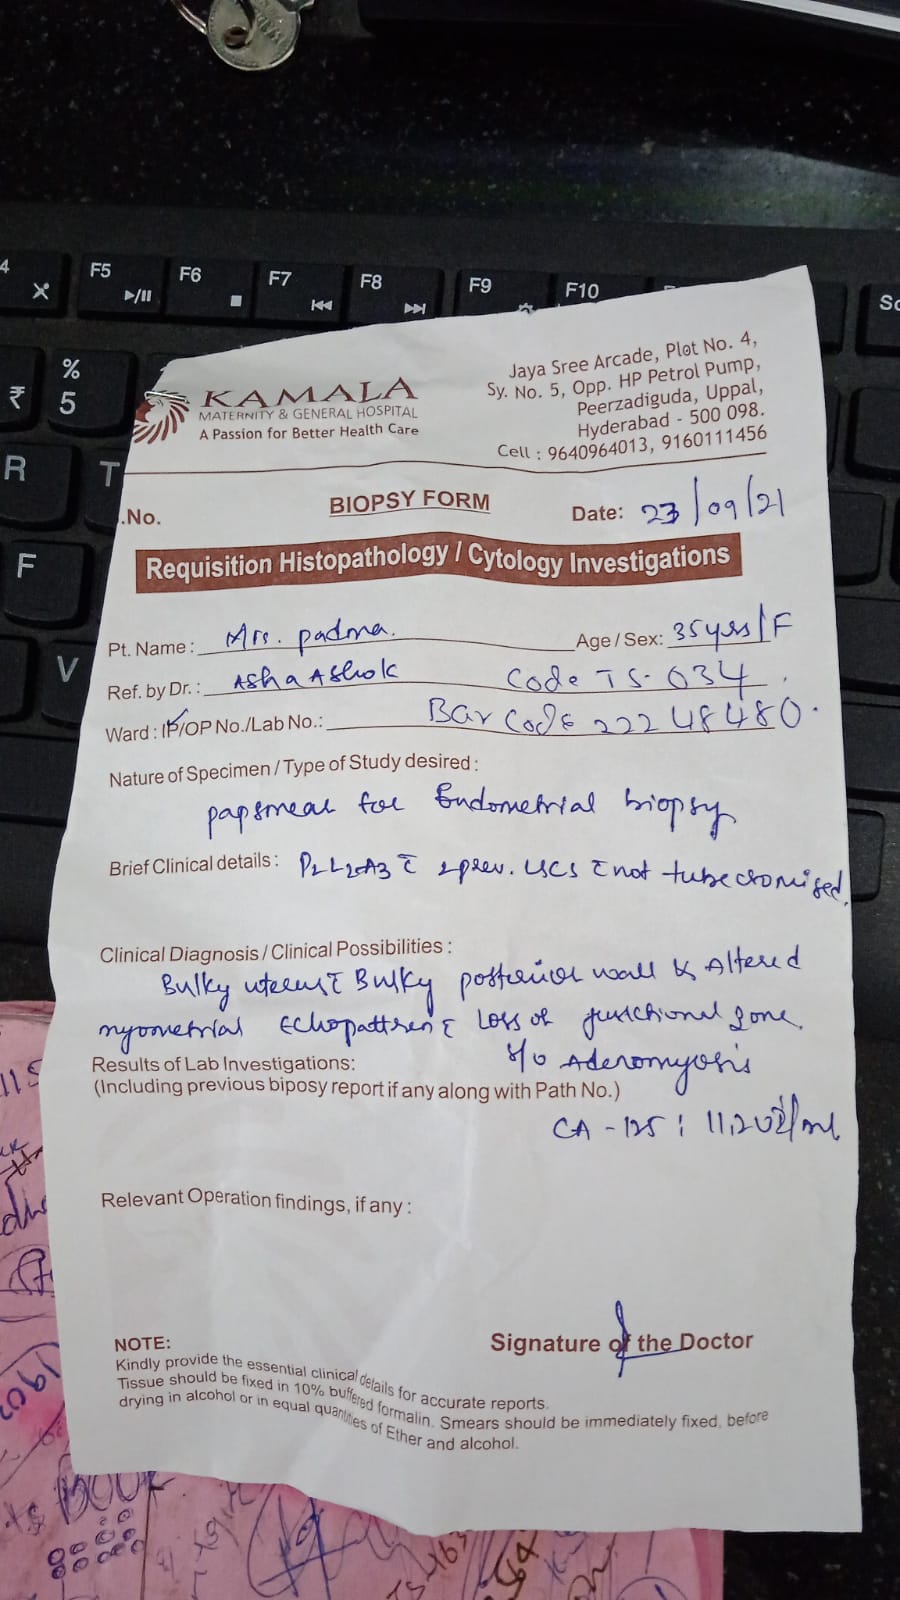 F5
F6
F7
F8
F9
F10
4
Sc
%
5
₹
R
T
F
V
KAMALA
MATERNITY & GENERAL HOSPITAL
A Passion for Better Health Care
Jaya Sree Arcade, Plot No. 4,
Sy. No. 5, Opp. HP Petrol Pump,
Peerzadiguda, Uppal,
Hyderabad - 500 098.
Cell : 9640964013, 9160111456
.No.
BIOPSY FORM
Date: 23/09/21
Requisition Histopathology / Cytology Investigations
Pt. Name : Mrs. padma. Age / Sex: 35yrs/F
Ref. by Dr. : Asha Ashok Code TS-034
Ward : IP/OP No./Lab No.: Bar Code 22248480.
Nature of Specimen / Type of Study desired :
papsmear for Endometrial biopsy
Brief Clinical details : P2L2A3 c̄ 2prev. LSCS c̄ not tubectomised.
Clinical Diagnosis / Clinical Possibilities :
Bulky uterus c̄ Bulky posterior wall & Altered
myometrial Echopattren c̄ Loss of junctional zone.
S/o Adenomyosis
Results of Lab Investigations:
(Including previous biposy report if any along with Path No.)
CA - 125 : 11.2 /mL
Relevant Operation findings, if any :
Signature of the Doctor
NOTE:
Kindly provide the essential clinical details for accurate reports.
Tissue should be fixed in 10% buffered formalin. Smears should be immediately fixed, before
drying in alcohol or in equal quantities of Ether and alcohol.